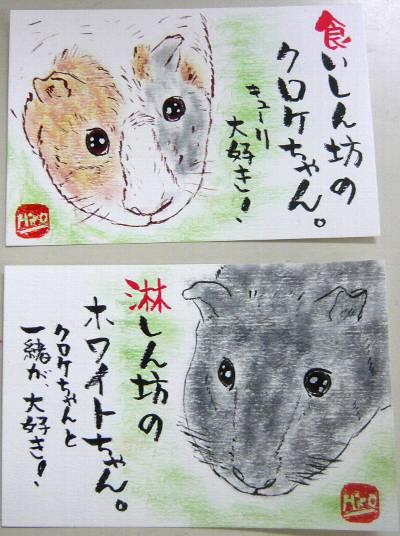 食いしん坊の
クロケちゃん。
キューリ
大好き!
Hiro
淋しん坊の
ホワイトちゃん。
クロケちゃんと
一緒が、大好き!
Hiro